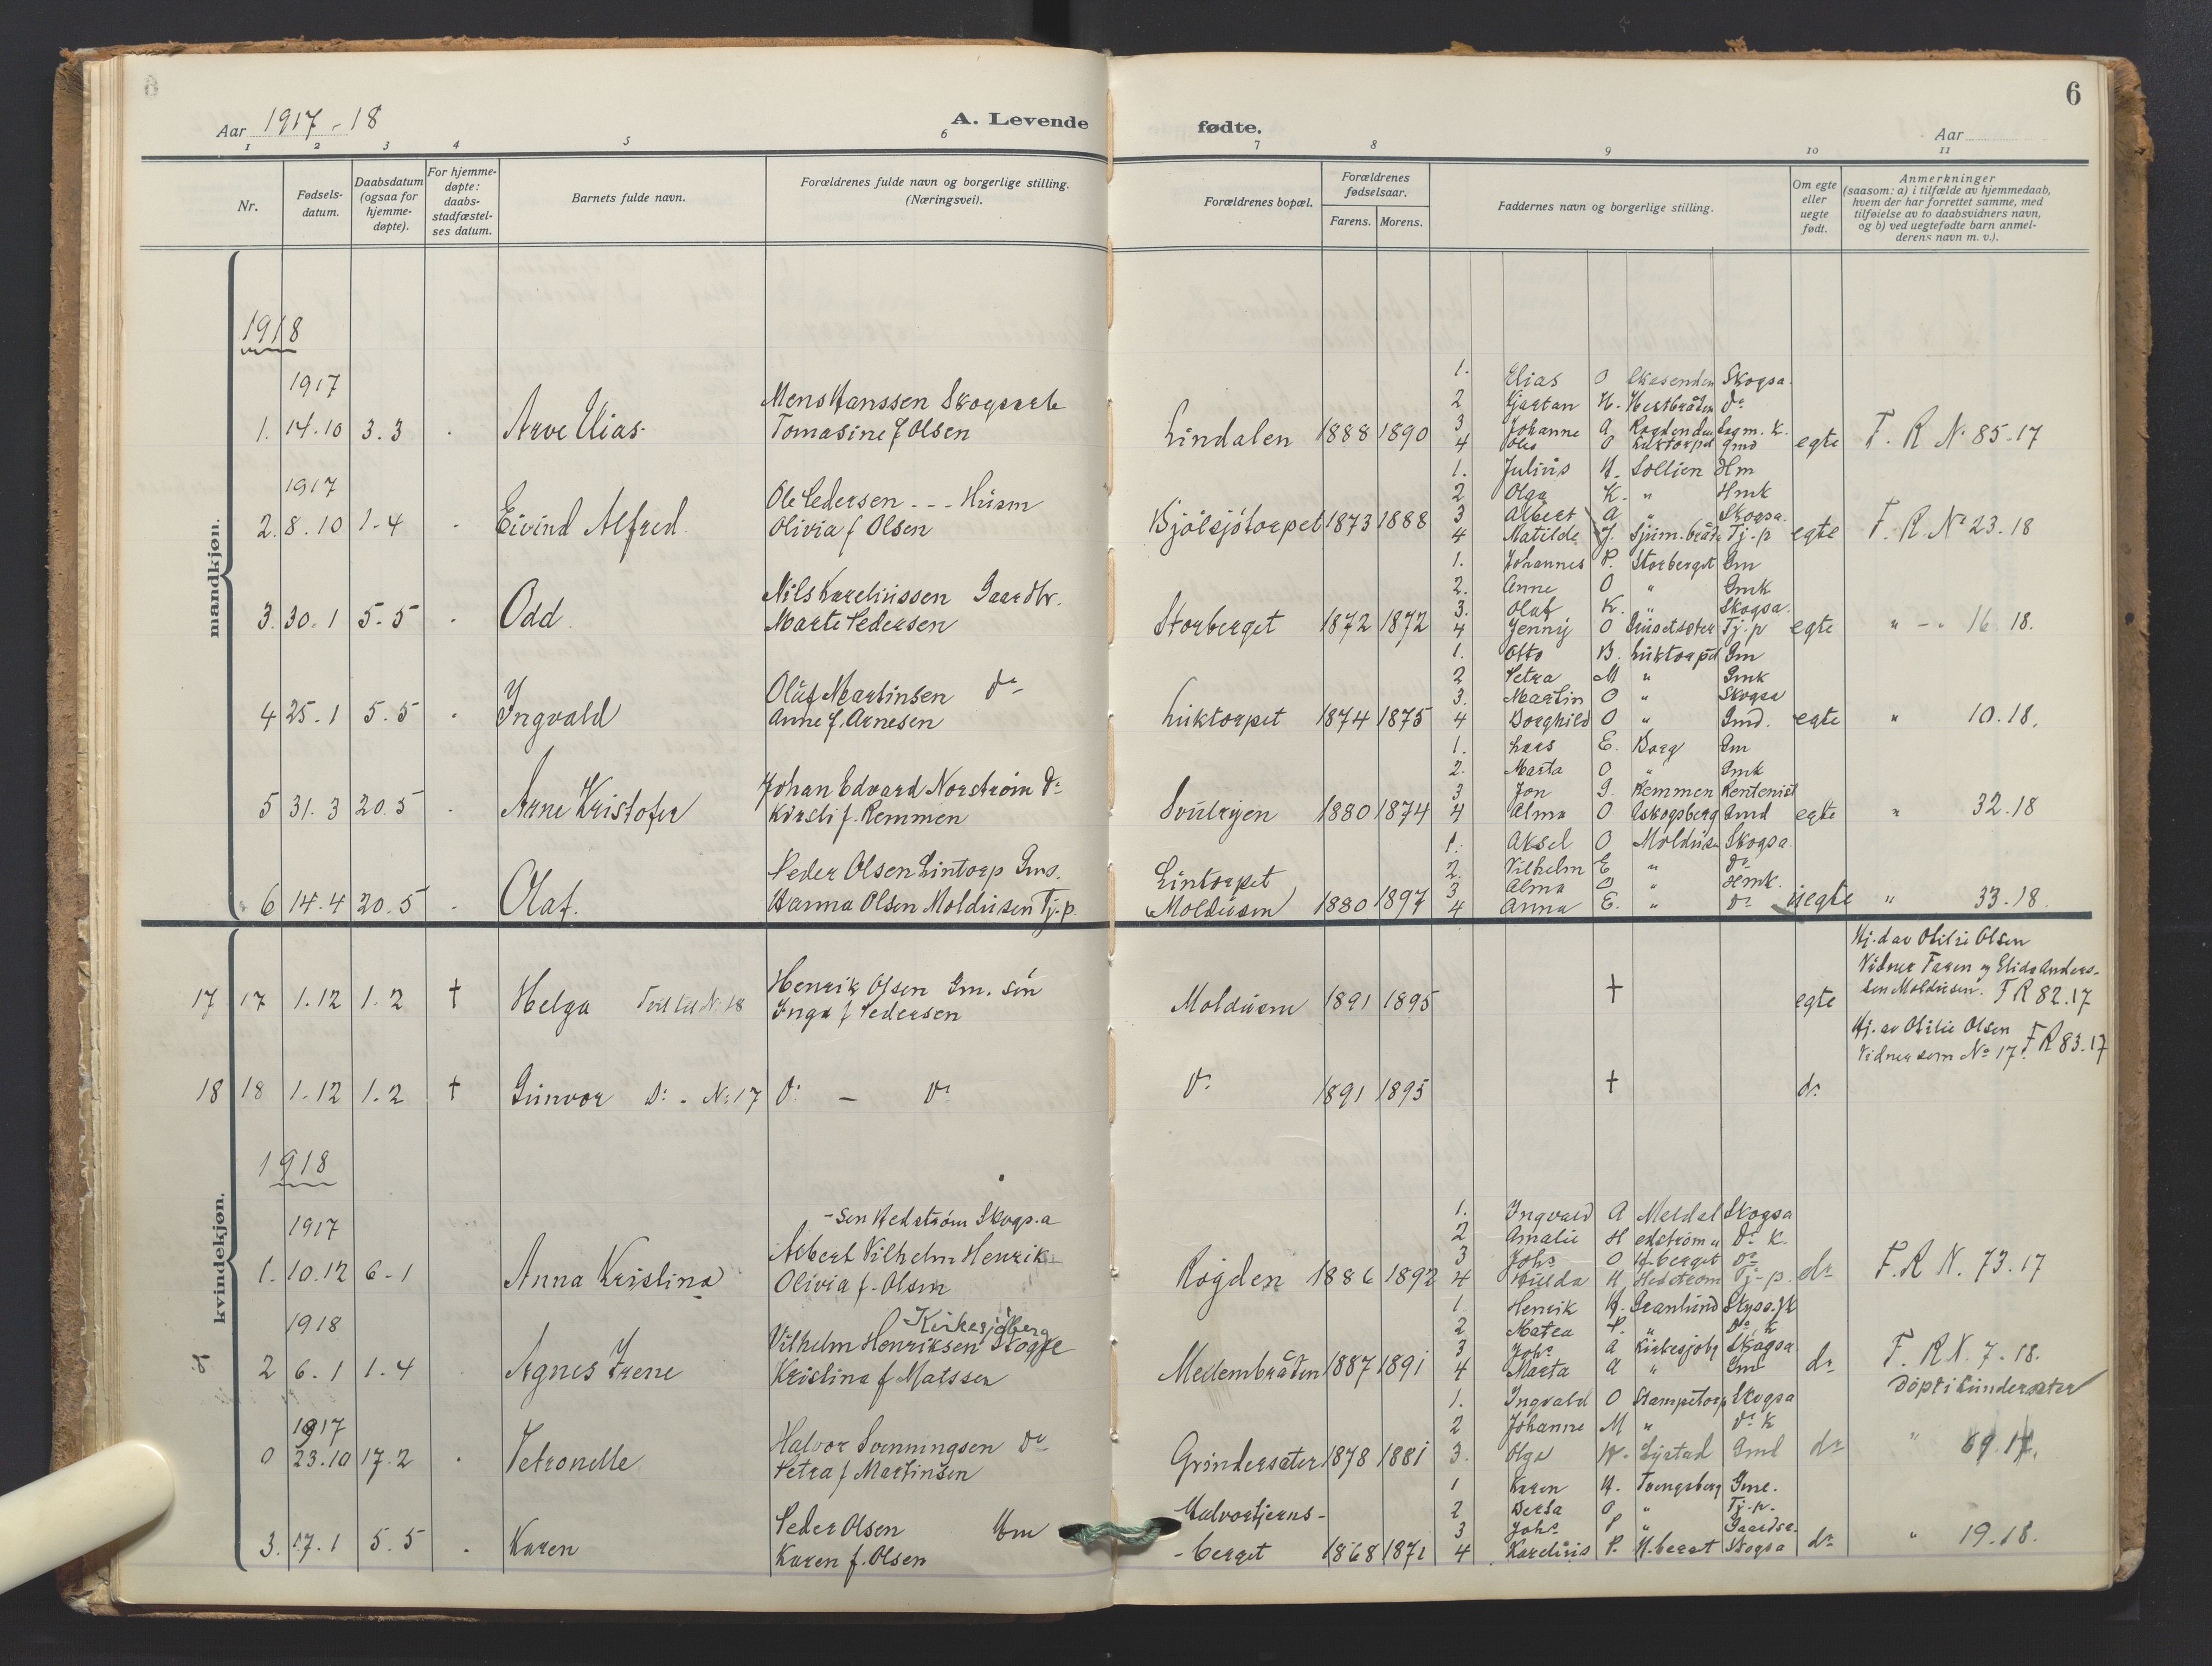 6
Aar 1917-18
A. Levende
fødte.
Aar
6
1 2 3 4 5 6 7 8 9 10 11
Nr.
Fødsels-
datum.
Daabsdatum
(ogsaa for
hjemme-
døpte).
For hjemme-
døpte:
daabs-
stadfæstel-
ses datum.
Barnets fulde navn.
Forældrenes fulde navn og borgerlige stilling.
(Næringsvei).
Forældrenes bopæl.
Forældrenes
fødselsaar.
Farens. Morens.
Faddernes navn og borgerlige stilling.
Om egte
eller
uegte
født.
Anmerkninger
(saasom: a) i tilfælde av hjemmedaab,
hvem der har forrettet samme, med
tilføielse av to daabsvidners navn,
og b) ved uegtefødte barn anmel-
derens navn m. v.).
mandkjøn.
1918
1917
1. 14.10 3.3 Arve Elias
Mens Hanssen Skogsarb
Tomasine f Olsen
Lindalen 1888 1890
1. Elias O Skogsa.
2 Kjartan H. Hestbråten do
3 Johanne A Rogdenden
4 O Luktorpet Gmd
egte F. R N. 85.17
1917
2. 8.10 1-4 Eivind Alfred
Ole Pedersen - - - Husm
Olivia f Olsen
Bjölsjötorpet 1873 1888
1. Julius H. Sollien Hm
2 Olga K. " Hmk
3 Albert A " Skogsa.
4 Matilde J. Tj-p
egte F. R. No 23.18
3. 30.1 5-5 Odd
Nils Karelinssen Gaardbr.
Marte Pedersen
Storberget 1872 1872
1. Johannes P. Storberget Gm
2. Anne O " Gmk
3. Olaf K. " Skogsa.
4 Jenny O Tj-p
egte " - " 16.18.
4 25.1 5.5 Ingvald
Oluf Martinsen do
Anne f. Arnesen
Luktorpet 1874 1875
1. Otto B. Luktorpet Gm
2 Petra M " Gmk
3. Martin O " Skogsa
4 Borghild O " Gmd.
egte " 10.18.
5 31.3 20.5 Arne Kristofer
Johan Edvard Norström do
Kirsti f. Remmen
Svulryen 1880 1874
1. Lars E. Borg Gm
2. Marta O " Gmk
3 Jon G. Remmen Rentenist
4 Alma O Eskogsberg Gmd
egte " 32.18
6 14.4 20.5 Olaf.
Peder Olsen Lintorp Gms.
Hanna Olsen Moldusen Tj-p.
Lintorpet
Moldusen 1880 1897
1. Aksel O Moldusen Skogsa.
2. Vilhelm E " do
3 Alma O " Hmk.
4 Anna E. " do
uegte " 33.18.
kvindekjøn.
17 17 1.12 1.2 † Helga Tvill No 18
Henrik Olsen Gm. sön
Inga f Pedersen
Moldusen 1891 1895 † egte
Hj. d av Otilie Olsen
Vidner Faren og Elida Anders-
sen Moldusen. F R 82.17
18 18 1.12 1.2 † Gunvor Do - No 17
Do - Do
do 1891 1895 † do
Hj. av Otilie Olsen
Vidner som No 17. F R 83.17
1918
1917
1. 10.12 6-1 Anna Kristina
-sen Hedström Skogs.a
Albert Vilhelm Henrik-
Olivia f. Olsen
Rögden 1886 1892
1. Ingvald A Meldal Skogsa
2 Amalie Hedström " do K.
3 Johs O H.berget do
4 Hulda H Hedström Tj-p.
do F. R N. 73.17
1918
2 6.1 1.4 Agnes Irene
Kirkesjöberg
Vilhelm Henriksen
Kristina f Matssen
Mellembråten 1887 1891
1. Henrik H. Granlund
2 Matea P. " do K
3 Johs A Kirkesjöbg Skogsa
4 Marta A " Gmd
do F. R N. 7.18.
Döpt i Lundersæter
1917
0 23.10 17.2 Petronelle
Halvor Svenningsen do
Petra f Martinsen
Grindersæter 1878 1881
1. Ingvald O Stampetorp Skogsa
2 Johanne M " do K
3. Olga Gmd
do " 69.17.
3. 17.1 5.5 Karen
Peder Olsen Hm
Karen f. Olsen
Halvortjerns-
-berget 1868 1871
1 Karen H. Tvengsberg Gme.
2 Berta O " Tj-p.
3 Johs P "
4 Karelius P. H.berget Skogsa
do " 19.18.